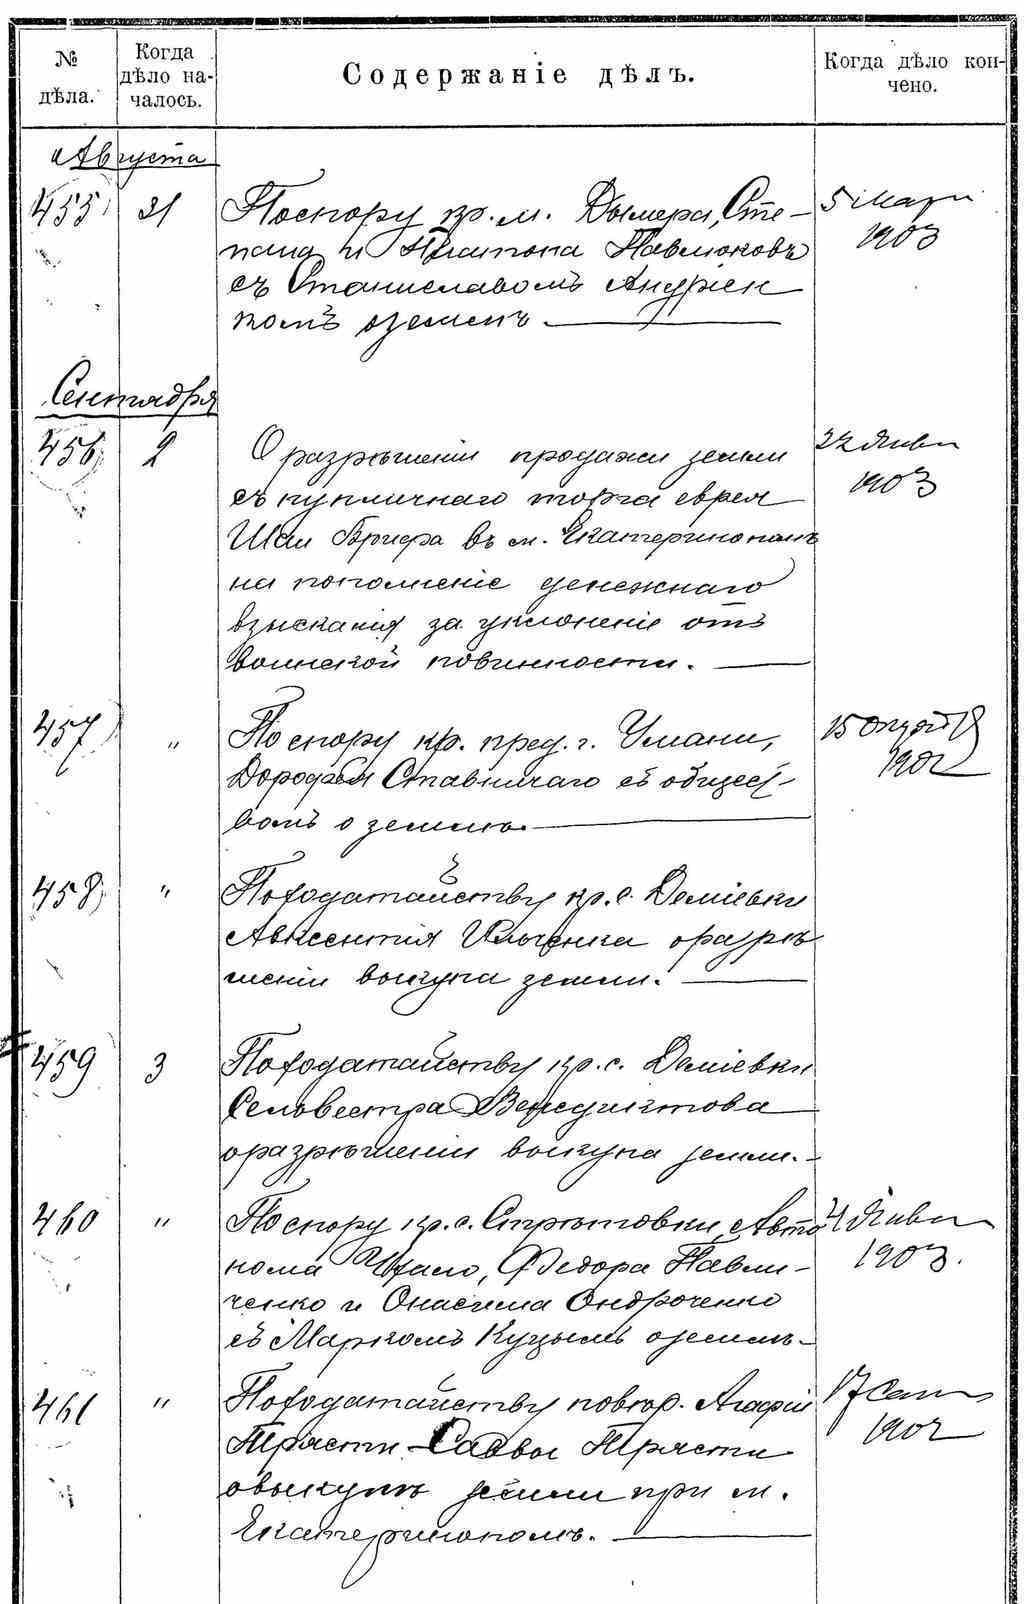 № дѣла.
Когда дѣло началось.
Содержаніе дѣлъ.
Когда дѣло кончено.
Августа
455 31 По спору кр. м. Дымера, Сте-
пана и Платона Павлюковъ
съ Станиславомъ Андріен
комъ о земле
5 Мар
1903
Сентября
456 2 О разрѣшеніи продажи земли
съ публичнаго торга еврея
Шаи Брифа въ м. Екатеринополѣ
на пополненіе денежнаго
взысканія за уклоненіе отъ
воинской повинности.
22 Янв
1903
457 " По спору кр. пред. г. Умани,
Дорофея Ставничаго съ общест-
вомъ о землю.
15 Октяб
1902
458 " По ходатайству кр. с. Деміевки
Авксентія Ильченка о разрѣ
шеніи выкупа земли.
459 3 По ходатайству кр. с. Деміевки
Сельвестра Венедиктова
о разрѣшеніи выкупа земли.
460 " По спору кр. с. Стрѣтовки, Авто
нома Федора Павли-
ченко и Онисима Ондроченко
съ Маркомъ Куцымъ о земль
4 Янв
1903.
461 " По ходатайству повѣр. Агафіи
Трясти Саввы Трясти
о выкупѣ земли при м.
Екатеринополѣ.
17 Сент
1902